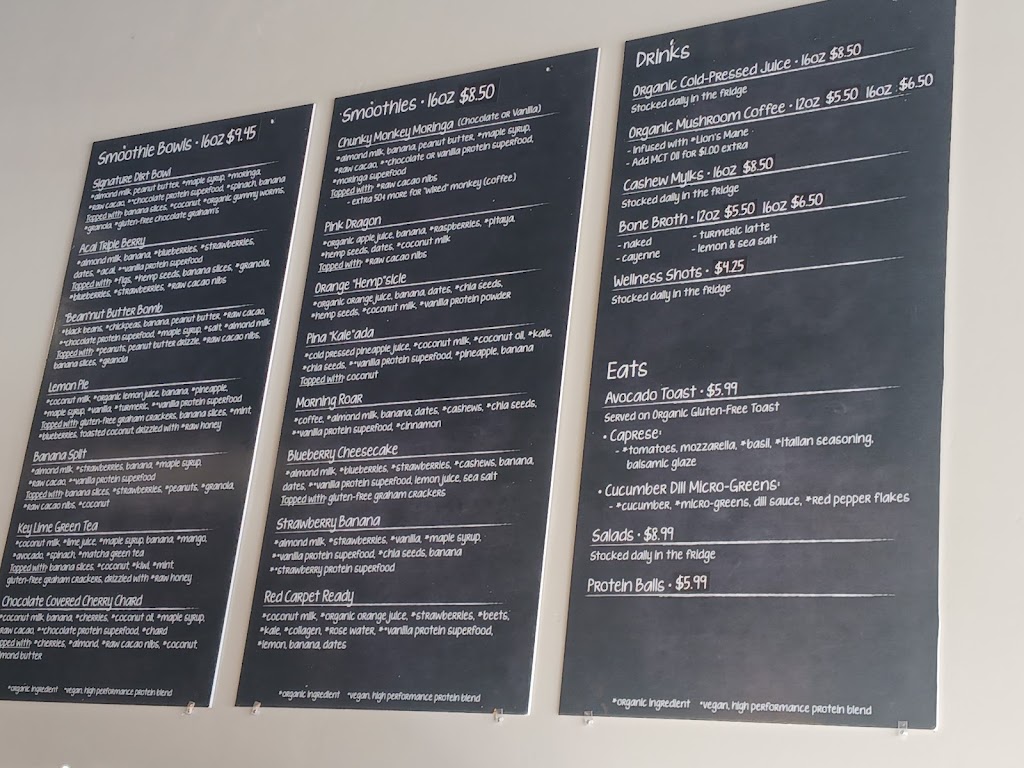 Smoothie Bowls • 16oz $9.45
Signature Dirt Bowl
*almond milk, peanut butter, *maple syrup, *moringa,
*raw cacao, *^chocolate protein superfood, *spinach, banana
Topped with: banana slices, *coconut, *organic gummy worms,
*granola, *gluten-free chocolate graham's
Acai Triple Berry
*almond milk, banana, *blueberries, *strawberries,
dates, *acai, *^vanilla protein superfood
Topped with: *figs, *hemp seeds, banana slices, *granola,
*blueberries, *strawberries, *raw cacao nibs
"Bean"nut Butter Bomb
*black beans, *chickpeas, banana, peanut butter, *raw cacao,
*chocolate protein superfood, *maple syrup, *salt, *almond milk
Topped with: *peanuts, peanut butter drizzle, *raw cacao nibs,
banana slices, *granola
Lemon Pie
*coconut milk, *organic lemon juice, banana, *pineapple,
*maple syrup, *vanilla, *turmeric, *^vanilla protein superfood
Topped with: gluten-free graham crackers, banana slices, *mint,
*blueberries, toasted coconut, drizzled with *raw honey
Banana Split
*almond milk, *strawberries, banana, *maple syrup,
*raw cacao, *^vanilla protein superfood
Topped with: banana slices, *strawberries, *peanuts, *granola,
*raw cacao nibs, *coconut
Key Lime Green Tea
*coconut milk, *lime juice, *maple syrup, banana, *mango,
*avocado, *spinach, *matcha green tea
Topped with: banana slices, *coconut, *kiwi, *mint,
gluten-free graham crackers, drizzled with *raw honey
Chocolate Covered Cherry Chard
*coconut milk, banana, *cherries, *coconut oil, *maple syrup,
raw cacao, *^chocolate protein superfood, *chard
opped with: *cherries, *almond, *raw cacao nibs, *coconut,
lmond butter
*organic ingredient ^vegan, high performance protein blend
Smoothies • 16oz $8.50
Chunky Monkey Moringa (Chocolate or Vanilla)
*almond milk, banana, peanut butter, *maple syrup,
*raw cacao, *^chocolate or vanilla protein superfood,
*moringa superfood
Topped with: *raw cacao nibs
- extra 50¢ more for "wired" monkey (coffee)
Pink Dragon
*organic apple juice, banana, *raspberries, *pitaya,
*hemp seeds, dates, *coconut milk
Topped with: *raw cacao nibs
Orange "Hemp"sicle
*organic orange juice, banana, dates, *chia seeds,
*hemp seeds, *coconut milk, *vanilla protein powder
Pina "Kale"ada
*cold pressed pineapple juice, *coconut milk, *coconut oil, *kale,
*chia seeds, *^vanilla protein superfood, *pineapple, banana
Topped with: coconut
Morning Roar
*coffee, *almond milk, banana, dates, *cashews, *chia seeds,
*^vanilla protein superfood, *cinnamon
Blueberry Cheesecake
*almond milk, *blueberries, *strawberries, *cashews, banana,
dates, *^vanilla protein superfood, lemon juice, sea salt
Topped with: gluten-free graham crackers
Strawberry Banana
*almond milk, *strawberries, *vanilla, *maple syrup,
*^vanilla protein superfood, *chia seeds, banana
*^strawberry protein superfood
Red Carpet Ready
*coconut milk, *organic orange juice, *strawberries, *beets,
*kale, *collagen, *rose water, *^vanilla protein superfood,
*lemon, banana, dates
*organic ingredient ^vegan, high performance protein blend
Drinks
Organic Cold-Pressed Juice • 16oz $8.50
Stocked daily in the fridge
Organic Mushroom Coffee • 12oz $5.50 16oz $6.50
- Infused with *Lion's Mane
- Add MCT Oil for $1.00 extra
Cashew Mylks • 16oz $8.50
Stocked daily in the fridge
Bone Broth • 12oz $5.50 16oz $6.50
- naked - turmeric latte
- cayenne - lemon & sea salt
Wellness Shots • $4.25
Stocked daily in the fridge
Eats
Avocado Toast • $5.99
Served on Organic Gluten-Free Toast
• Caprese:
- *tomatoes, mozzarella, *basil, *Italian seasoning,
balsamic glaze
• Cucumber Dill Micro-Greens:
- *cucumber, *micro-greens, dill sauce, *red pepper flakes
Salads • $8.99
Stocked daily in the fridge
Protein Balls • $5.99
*organic ingredient ^vegan, high performance protein blend